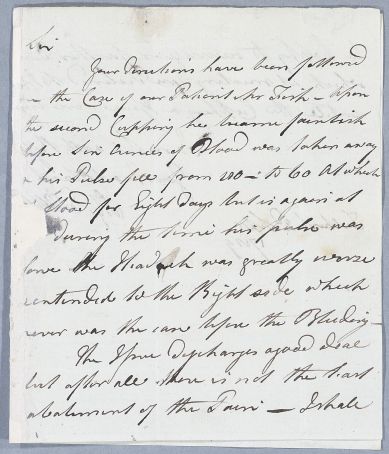 Sir
Your directions have been followed
in the Case of our Patient Mr Fish – Upon
the second Cupping he became faintish
before Six Ounces of Blood was taken away
& his Pulse fell from 100 – to 60 At which
stood for Eight Days but is again at
during the time his pulse was
lowe the Headach was greatly worse
extended to the Right side which
never was the case before the Bleeding –
The Issue discharges a good deal
but after all there is not the least
abatement of the Pain – I shall